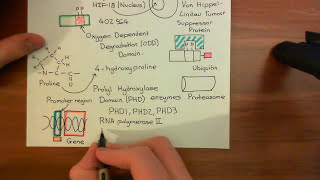 HIF-1B (Nucleus)
Von Hippel-
Lindau Tumour
Suppressor
Protein
402 564
Oxygen Dependent
Degradation (ODD)
Domain
4-hydroxyproline
Ubiquitin
Proline
Prolyl Hydroxylase
Promoter region
Domain (PHD) enzymes
Proteasome
PHD1, PHD2, PHD3
RNA polymerase II
Gene